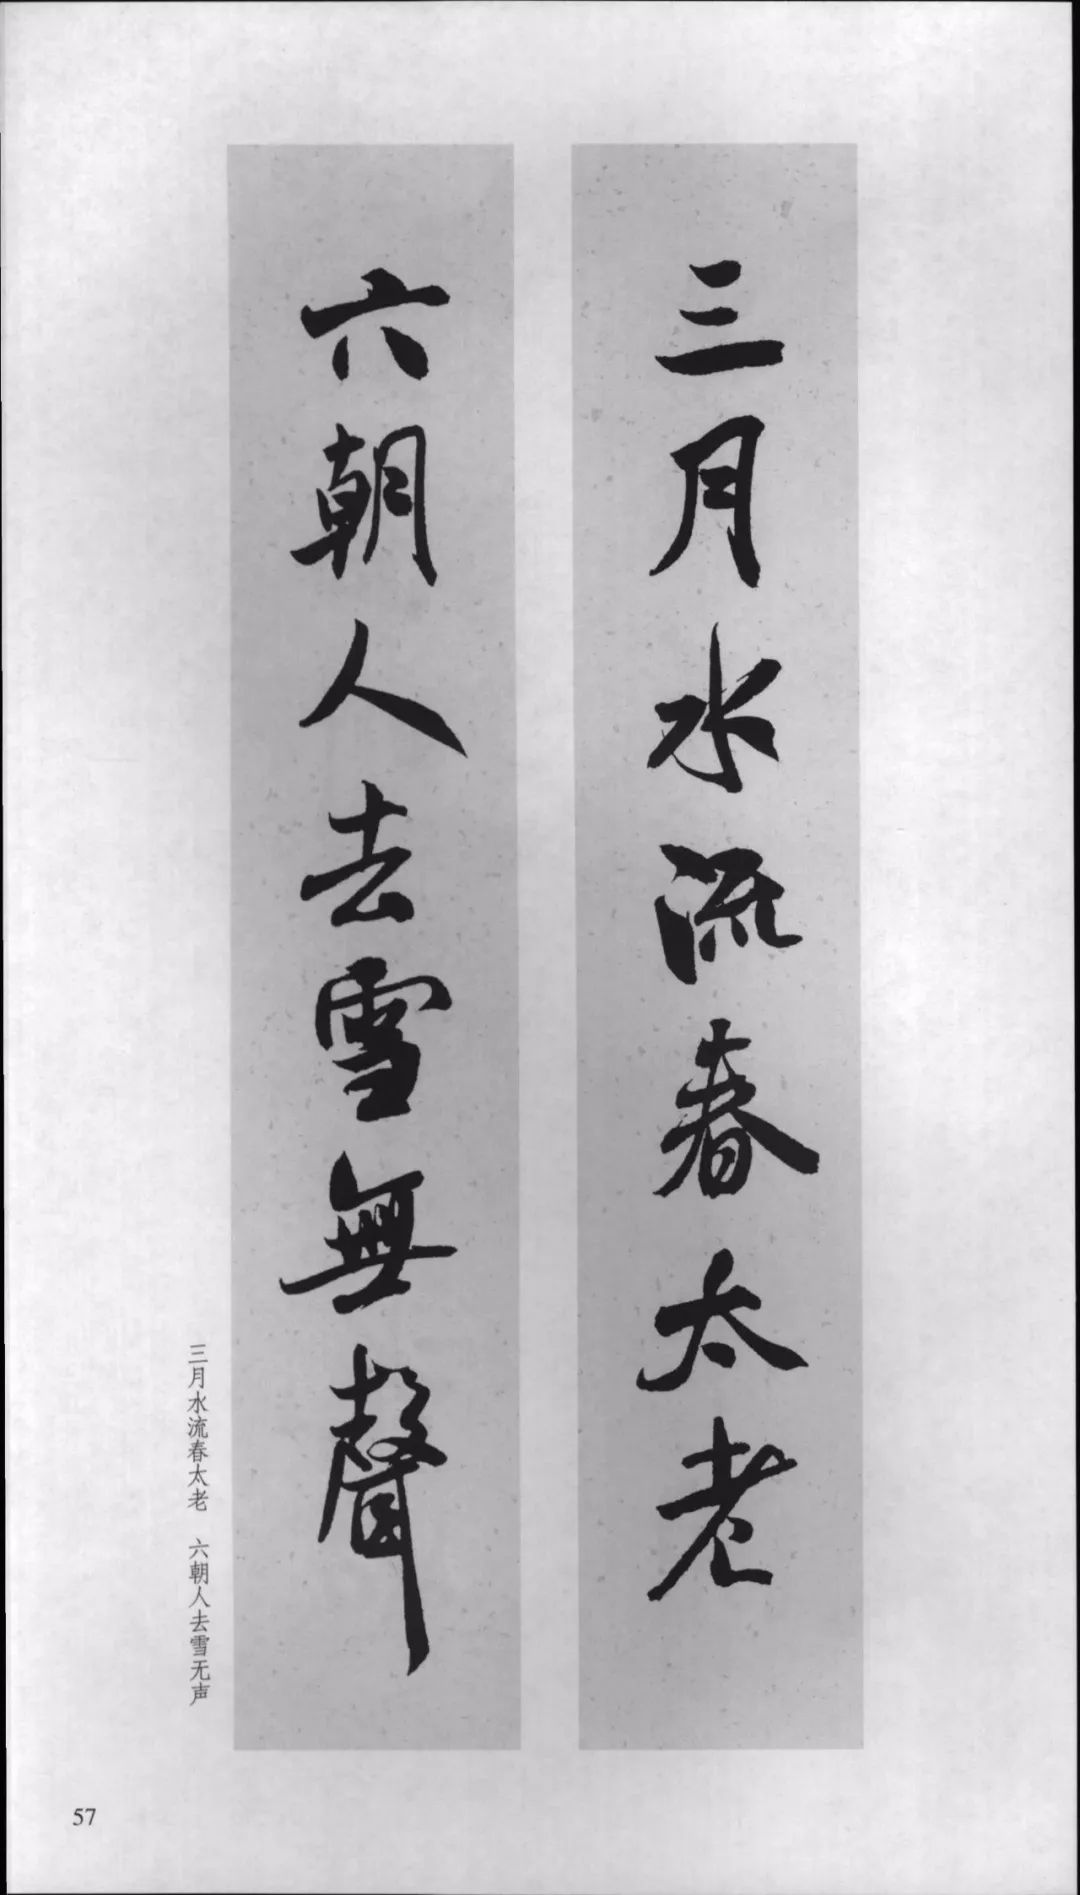 三月水流春太老
六朝人去雪無聲
三月水流春太老　六朝人去雪无声
57